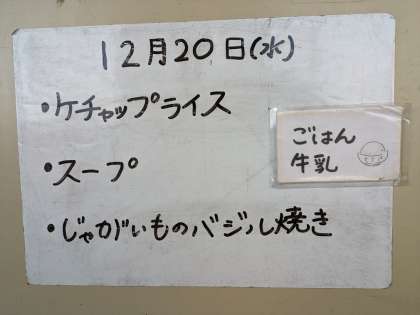 12月20日(水)
・ケチャップライス
・スープ
・じゃがいものバジル焼き
ごはん
牛乳